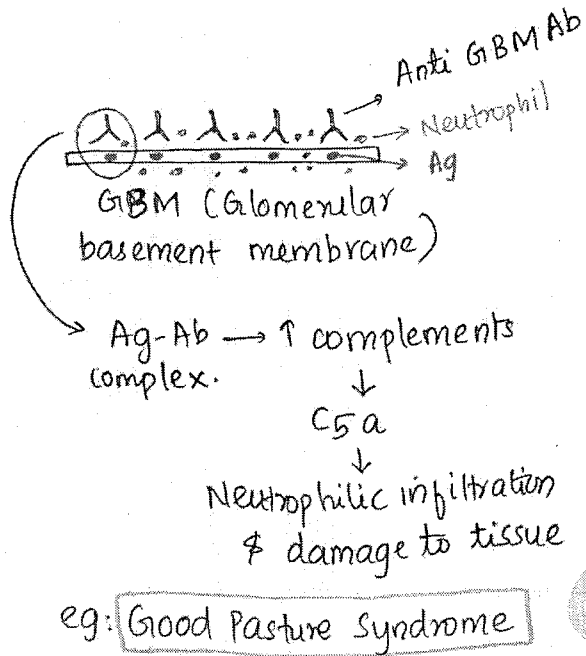 Anti GBM Ab
Neutrophil
Ag
GBM (Glomerular
basement membrane)
Ag-Ab → ↑ complements
complex.
↓
C5a
↓
Neutrophilic infiltration
& damage to tissue
eg: Good Pasture Syndrome